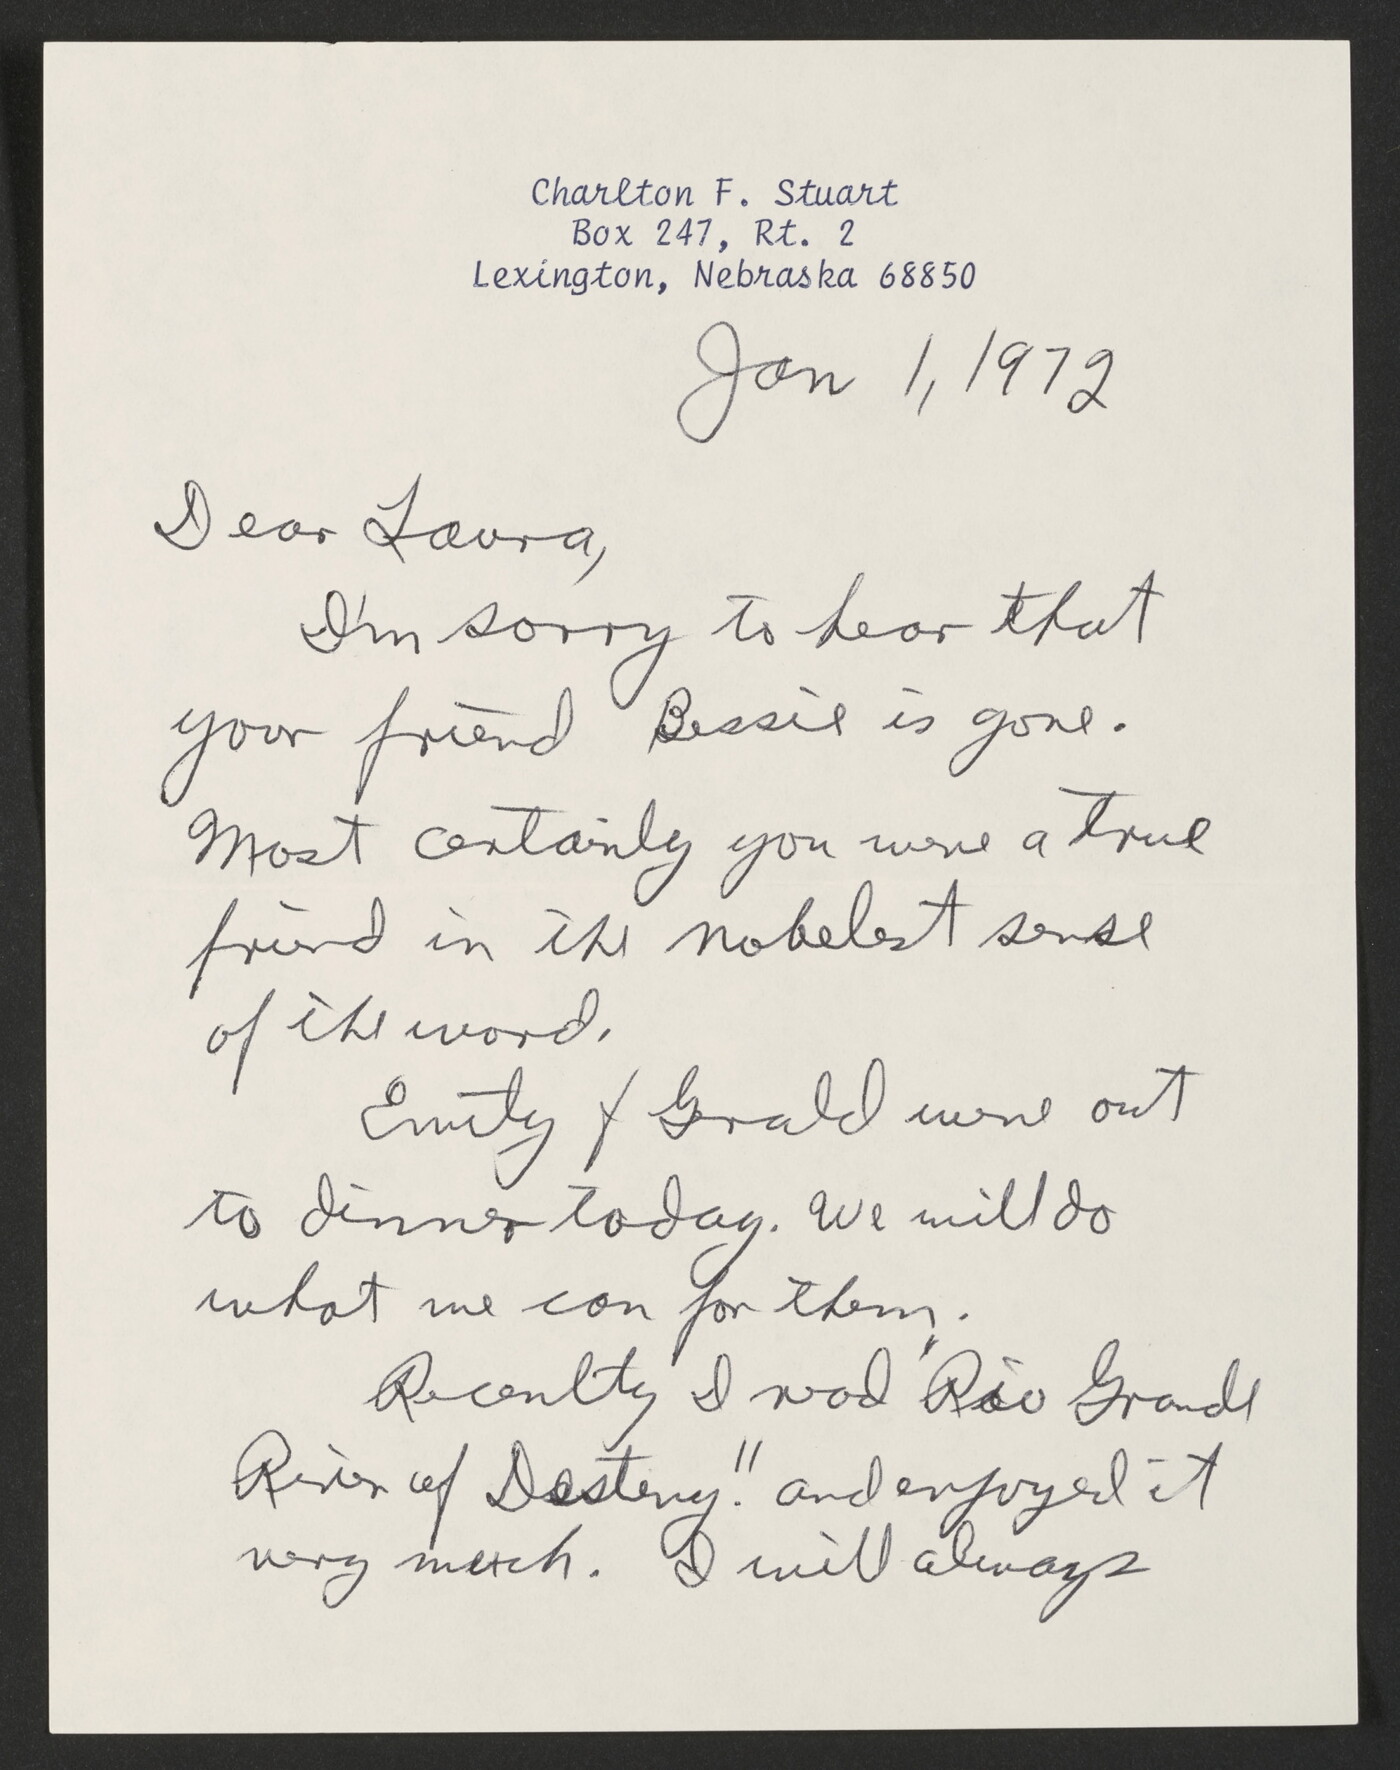 Charlton F. Stuart
Box 247, Rt. 2
Lexington, Nebraska 68850
Jan 1, 1972
Dear Laura,
I'm sorry to hear that
your friend Bessie is gone.
Most certainly you were a true
friend in the nobelest sense
of the word.
Emily & Gerald were out
to dinner today. We will do
what we can for them.
Recenlty I read "Rio Grande
River of Desteny." and enjoyed it
very much. I will always